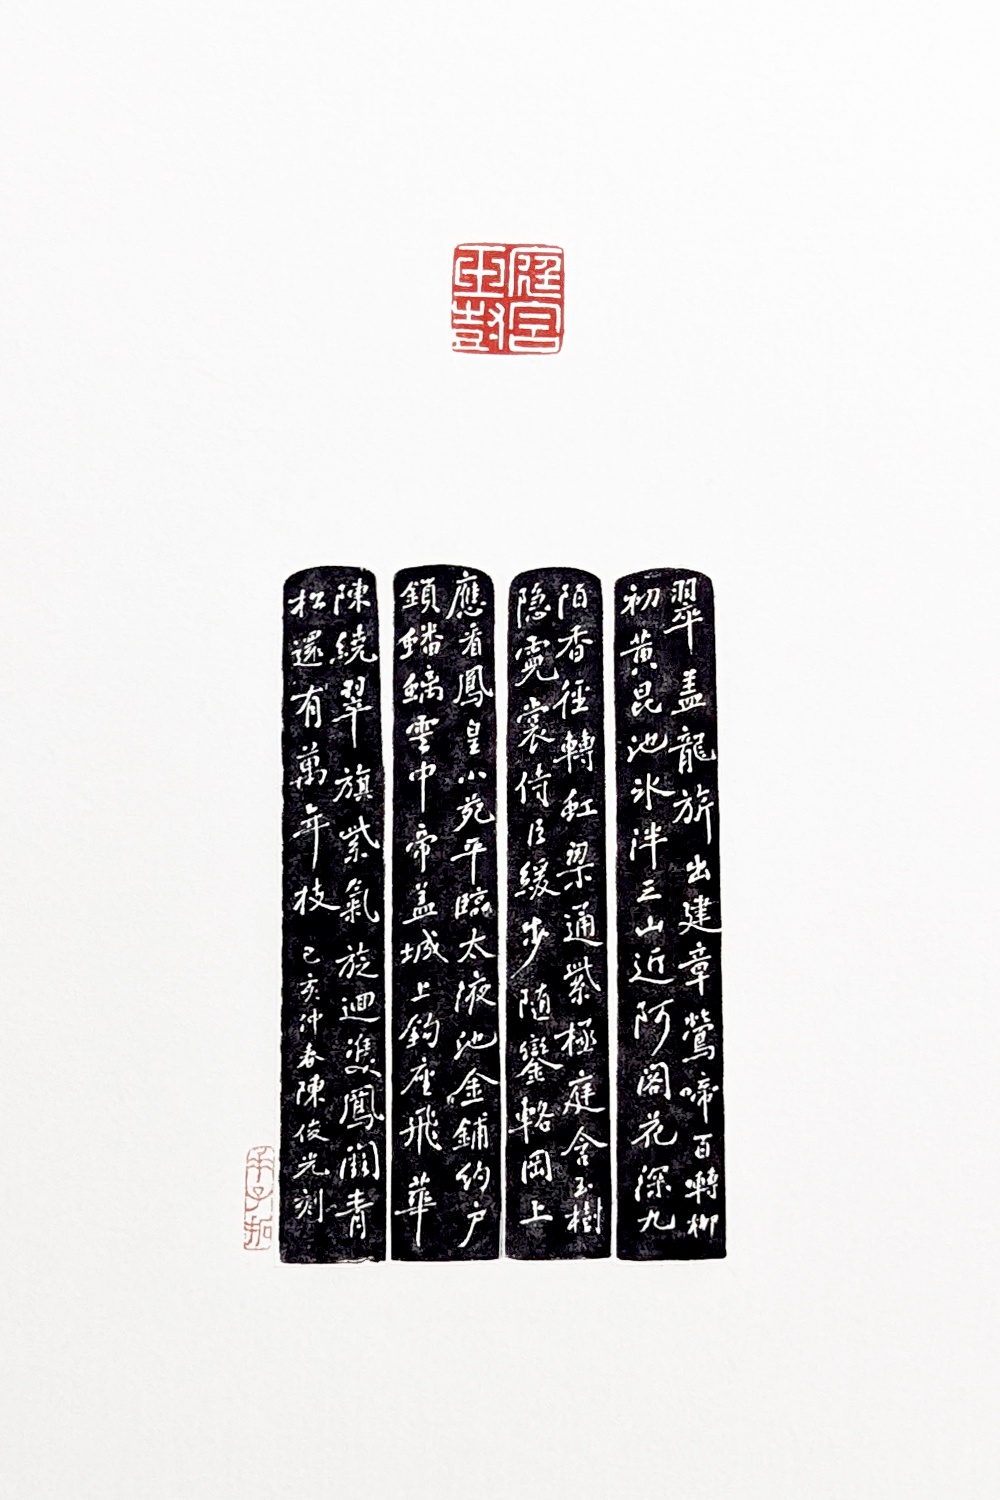 庭含
玉尌
翠盖龍旂出建章鶯啼百囀柳
初黄昆池氷泮三山近阿閣花深九
陌香徑轉虹梁通紫極庭含玉樹
隐霓裳侍臣緩步随鑾輅岡上
應看鳳皇小苑平臨太液池金鋪約户
鎖蟠螭雲中帝盖城上鈎座飛華
陳繞翠旗紫氣旋迴雙鳳闕青
松還有萬年枝 己亥仲春陳俊光刻